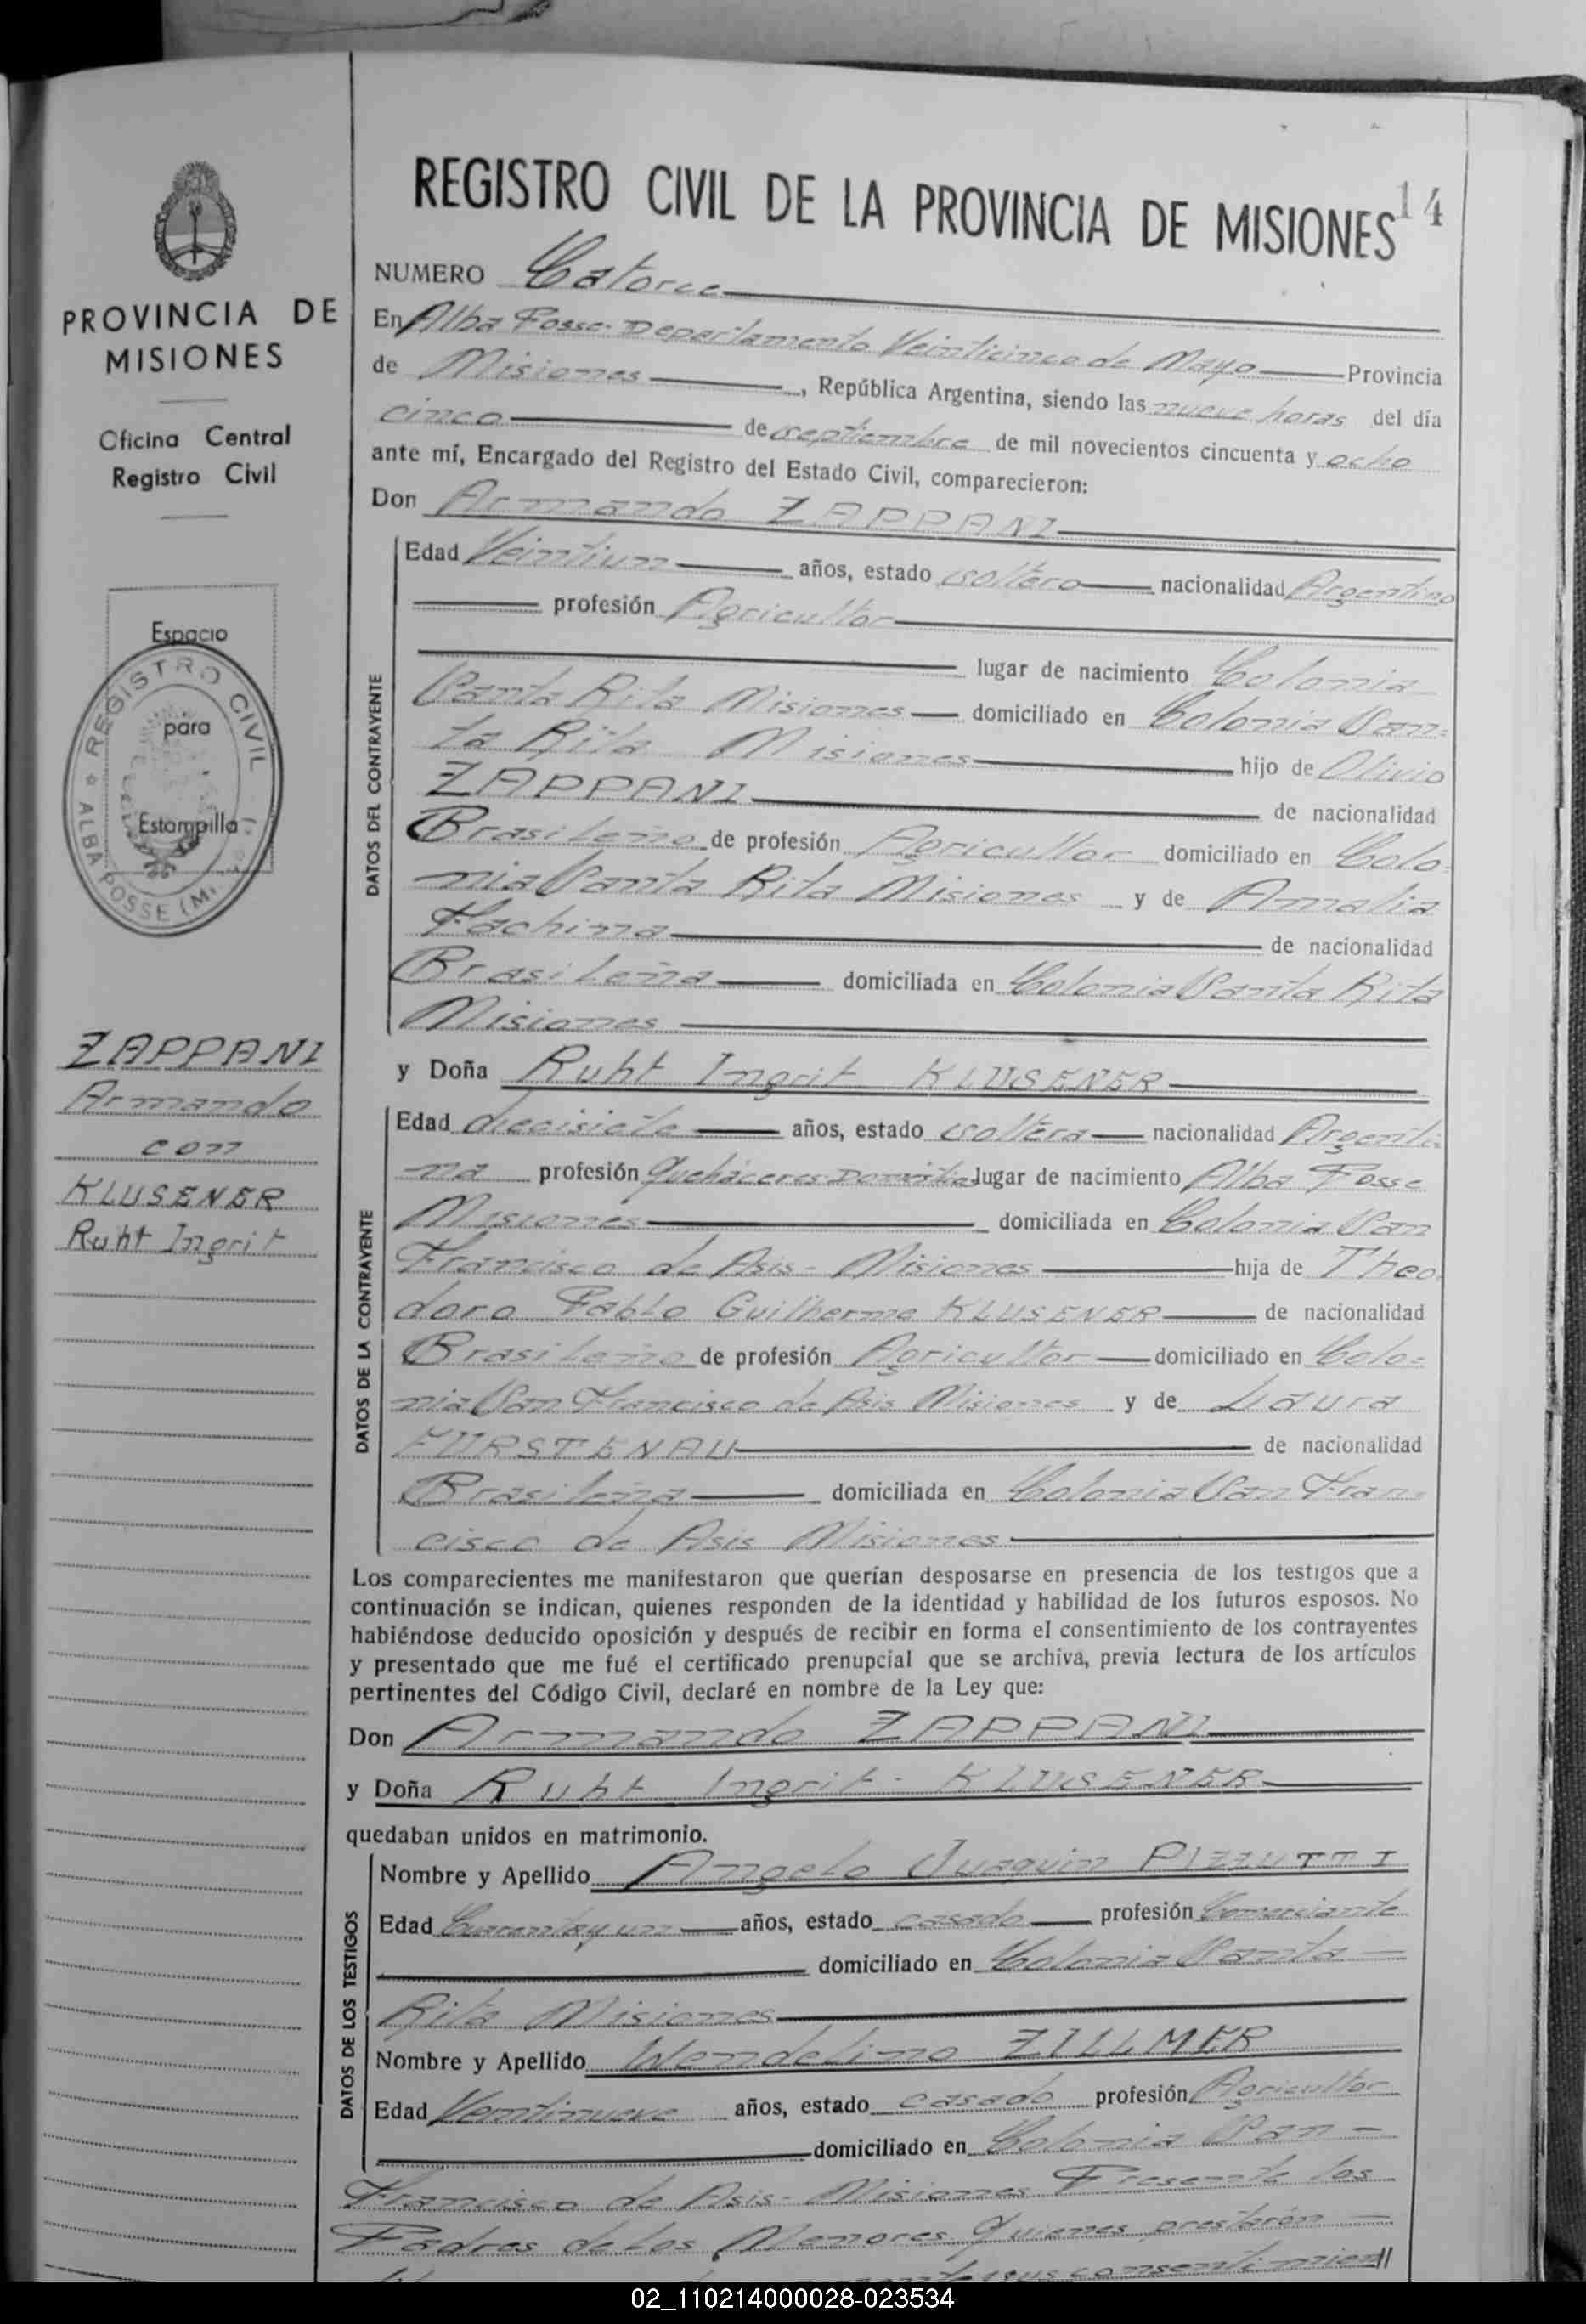 14
REGISTRO CIVIL DE LA PROVINCIA DE MISIONES
NUMERO Catorce
En Alba Posse Departamento Veinticinco de Mayo Provincia
de Misiones, República Argentina, siendo las nueve horas del día
cinco de septiembre de mil novecientos cincuenta y ocho
ante mí, Encargado del Registro del Estado Civil, comparecieron:
Don Armando ZAPPANI
DATOS DEL CONTRAYENTE
Edad Veintiun años, estado soltero nacionalidad Argentino
profesión Agricultor
lugar de nacimiento Colonia
Santa Rita Misiones domiciliado en Colonia San=
ta Rita Misiones hijo de Olivio
ZAPPANI de nacionalidad
Brasileño de profesión Agricultor domiciliado en Colo
nia Santa Rita Misiones y de Amalia
Fachina de nacionalidad
Brasileña domiciliada en Colonia Santa Rita
Misiones
y Doña Ruht Ingrit KLUSENER
DATOS DE LA CONTRAYENTE
Edad diecisiete años, estado soltera nacionalidad Argenti
na profesión Quehaceres lugar de nacimiento Alba Posse
Misiones domiciliada en Colonia San
Francisco de Asis - Misiones hija de Theo
doro Pablo Guilherme KLUSENER de nacionalidad
Brasileño de profesión Agricultor domiciliado en Colo=
nia San Francisco de Asis Misiones y de Laura
FURSTENAU de nacionalidad
Brasileña domiciliada en Colonia San Fran
cisco de Asis Misiones
Los comparecientes me manifestaron que querían desposarse en presencia de los testigos que a
continuación se indican, quienes responden de la identidad y habilidad de los futuros esposos. No
habiéndose deducido oposición y después de recibir en forma el consentimiento de los contrayentes
y presentado que me fué el certificado prenupcial que se archiva, previa lectura de los artículos
pertinentes del Código Civil, declaré en nombre de la Ley que:
Don Armando ZAPPANI
y Doña Ruht Ingrit - KLUSENER
quedaban unidos en matrimonio.
DATOS DE LOS TESTIGOS
Nombre y Apellido Angelo Juaquin PIZZUTTI
Edad Cuarentayun años, estado casado profesión Comerciante
domiciliado en Colonia Santa -
Rita Misiones
Nombre y Apellido Wendelino ZILLMER
Edad Veintinueve años, estado casado profesión Agricultor
domiciliado en Colonia San -
Francisco de Asis - Misiones Presente los
Padres de los Menores Quienes prestarón
sus consentimien//
PROVINCIA DE
MISIONES
Oficina Central
Registro Civil
Espacio
para
Estampilla
REGISTRO CIVIL
ALBA POSSE (M.
ZAPPANI
Armando
con
KLUSENER
Ruht Ingrit
02_110214000028-023534